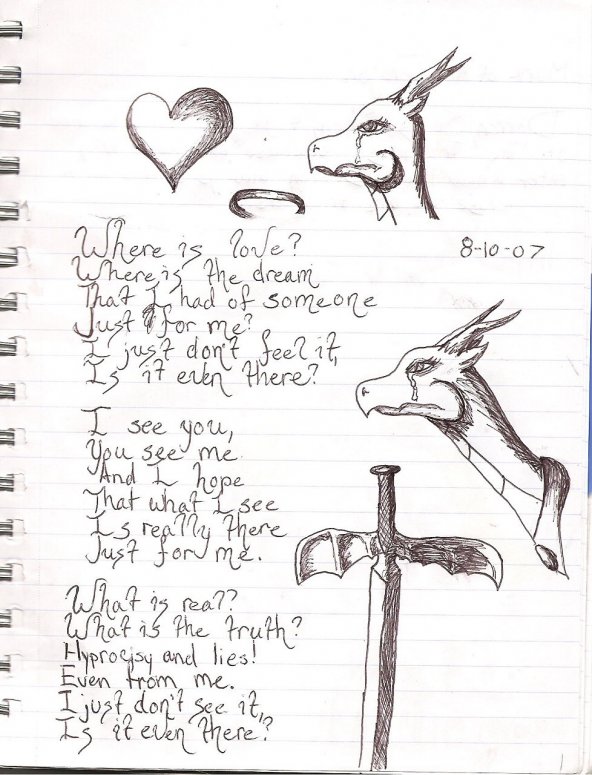 Where is love?
8-10-07
Where is the dream
That I had of someone
Just for me?
I just don't feel it,
Is it even there?
I see you,
You see me
And I hope
That what I see
Is really there
Just for me.
What is real?
What is the truth?
Hyprocisy and lies!
Even from me.
I just don't see it,
Is it even there?